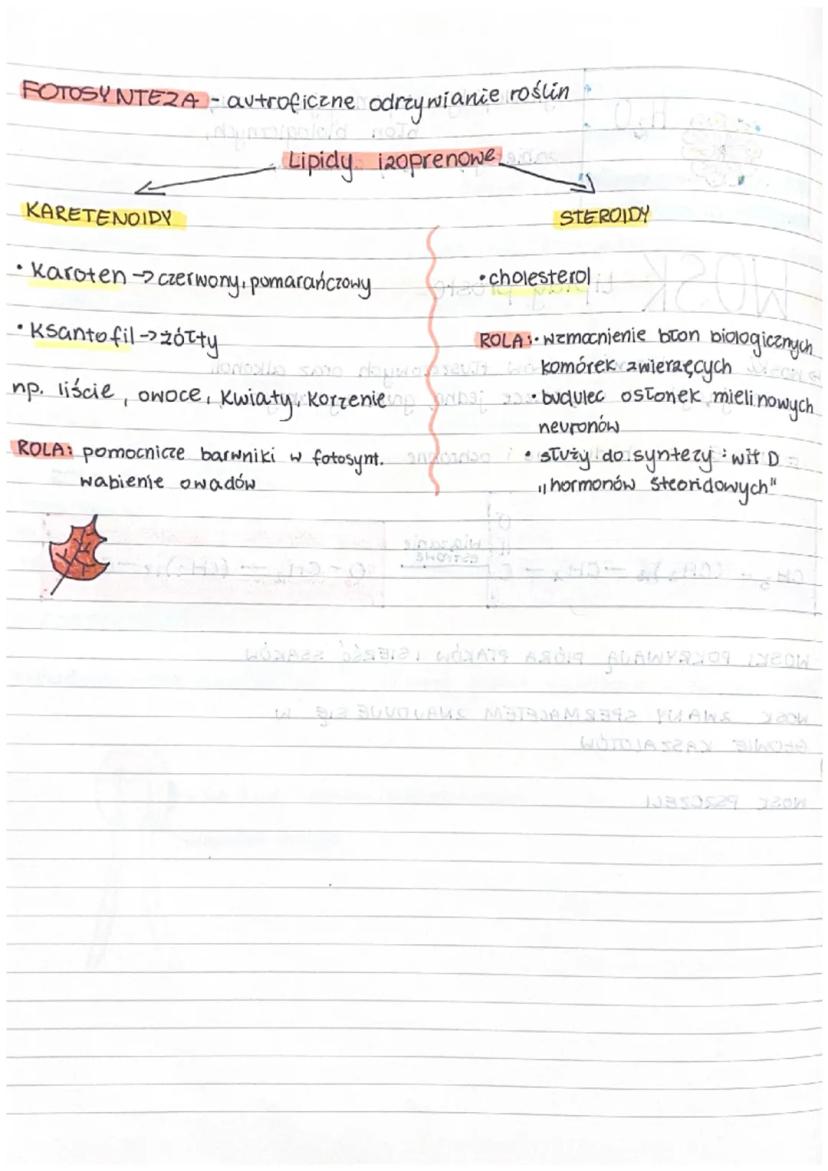 FOTOSYNTEZA - autroficzne odrzywianie roślin
Lipidy izoprenowe
KARETENOIDY
• Karoten -> czerwony, pomarańczowy
• Ksantofil -> żółty
np. liście, owoce, kwiaty, korzenie
ROLA: pomocnicze barwniki w fotosynt.
wabienie owadów
STEROIDY
• cholesterol
ROLA: • wzmocnienie błon biologicznych
komórek zwierzęcych
• budulec osłonek mielinowych
neuronów
• służy do syntezy: wit D
„hormonów steoridowych"